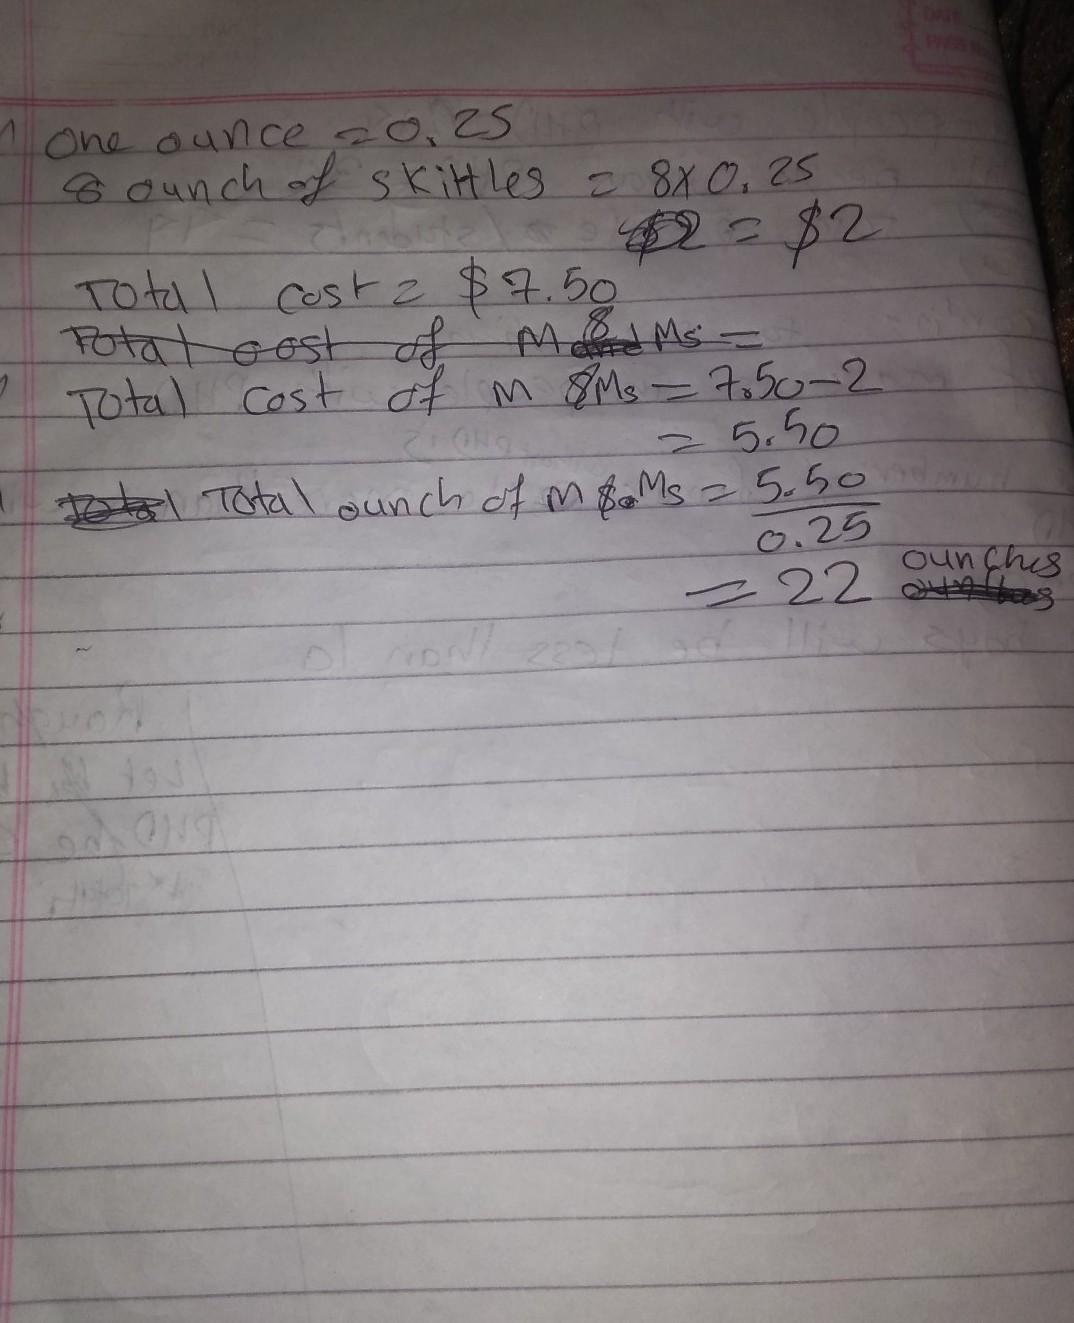 One ounce = 0.25
8 ounch of skittles = 8x0.25
$2 = $2
Total cost = $7.50
Total cost of M & Ms =
Total cost of M &Ms = 7.50-2
= 5.50
Total Total ounch of M & Ms = 5.50
0.25
= 22 ounches